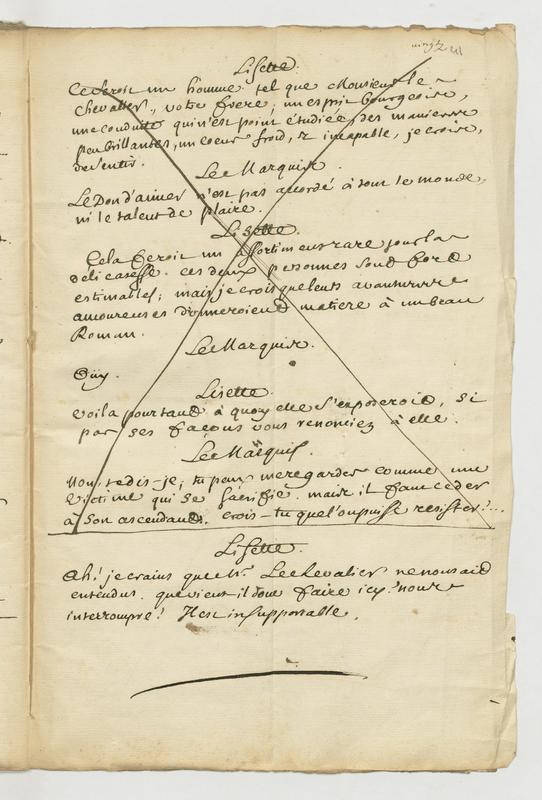 Lisette.
Ce seroit un homme tel que Monsieur le
chevalier, votre frere, un esprit bourgeois,
une conduite qui n'est point étudiée, des manieres
peu brillantes, un coeur froid, & incapable, je crois,
de sentir.
Le Marquis.
Le Don d'aimer n'est pas accordé à tout le monde,
ni le talent de plaire.
Lisette.
Cela feroit un assortiment rare pour la
delicatesse. ces deux personnes sont fort
estimables; mais je crois que leurs avantures
amoureuses donneroient matiere à un beau
Roman.
Le Marquis.
Oüy.
Lisette.
Voila pourtant à quoy elle s'exposeroit, si
par ses façons vous renonciez à elle.
Le Marquis.
Non, te dis-je; tu peux me regarder comme une
victime qui se sacrifie. mais il faut ceder
à son ascendant. crois-tu que l'on puisse resister?...
Lisette.
Ah! je crains que Mr. Le chevalier ne nous ait
entendus. que vient-il donc faire icy? nous
interrompre! Il est insupportable.